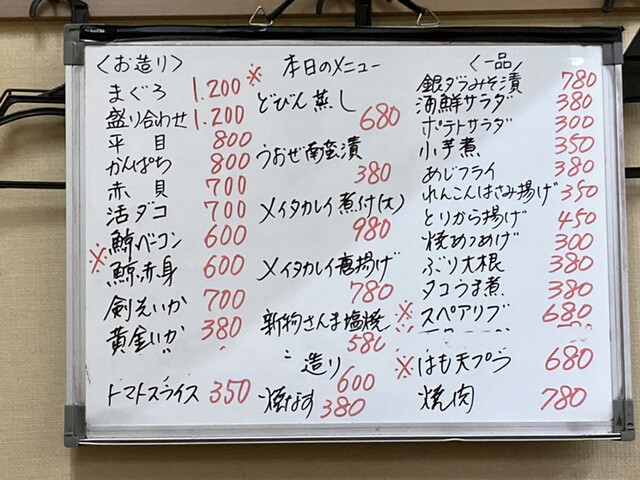 〈お造り〉
まぐろ 1.200 ※
盛り合わせ 1.200
平目 800
かんぱち 800
赤貝 700
活ダコ 700
※鯨ベーコン 600
鯨赤身 600
剣先いか 700
黄金いか 380
トマトスライス 350
本日のメニュー
どびん蒸し
680
うおぜ南蛮漬
380
メイタカレイ煮付(大)
980
メイタカレイ唐揚げ
780
新物さんま塩焼
580
〃 造り
600
焼なす 380
〈一品〉
銀ダラみそ漬 780
海鮮サラダ 380
ポテトサラダ 300
小芋煮 350
あじフライ 380
れんこんはさみ揚げ 350
とりから揚げ 450
焼あつあげ 300
ぶり大根 380
タコうま煮 380
※スペアリブ 680
※はも天プラ 680
焼肉 780